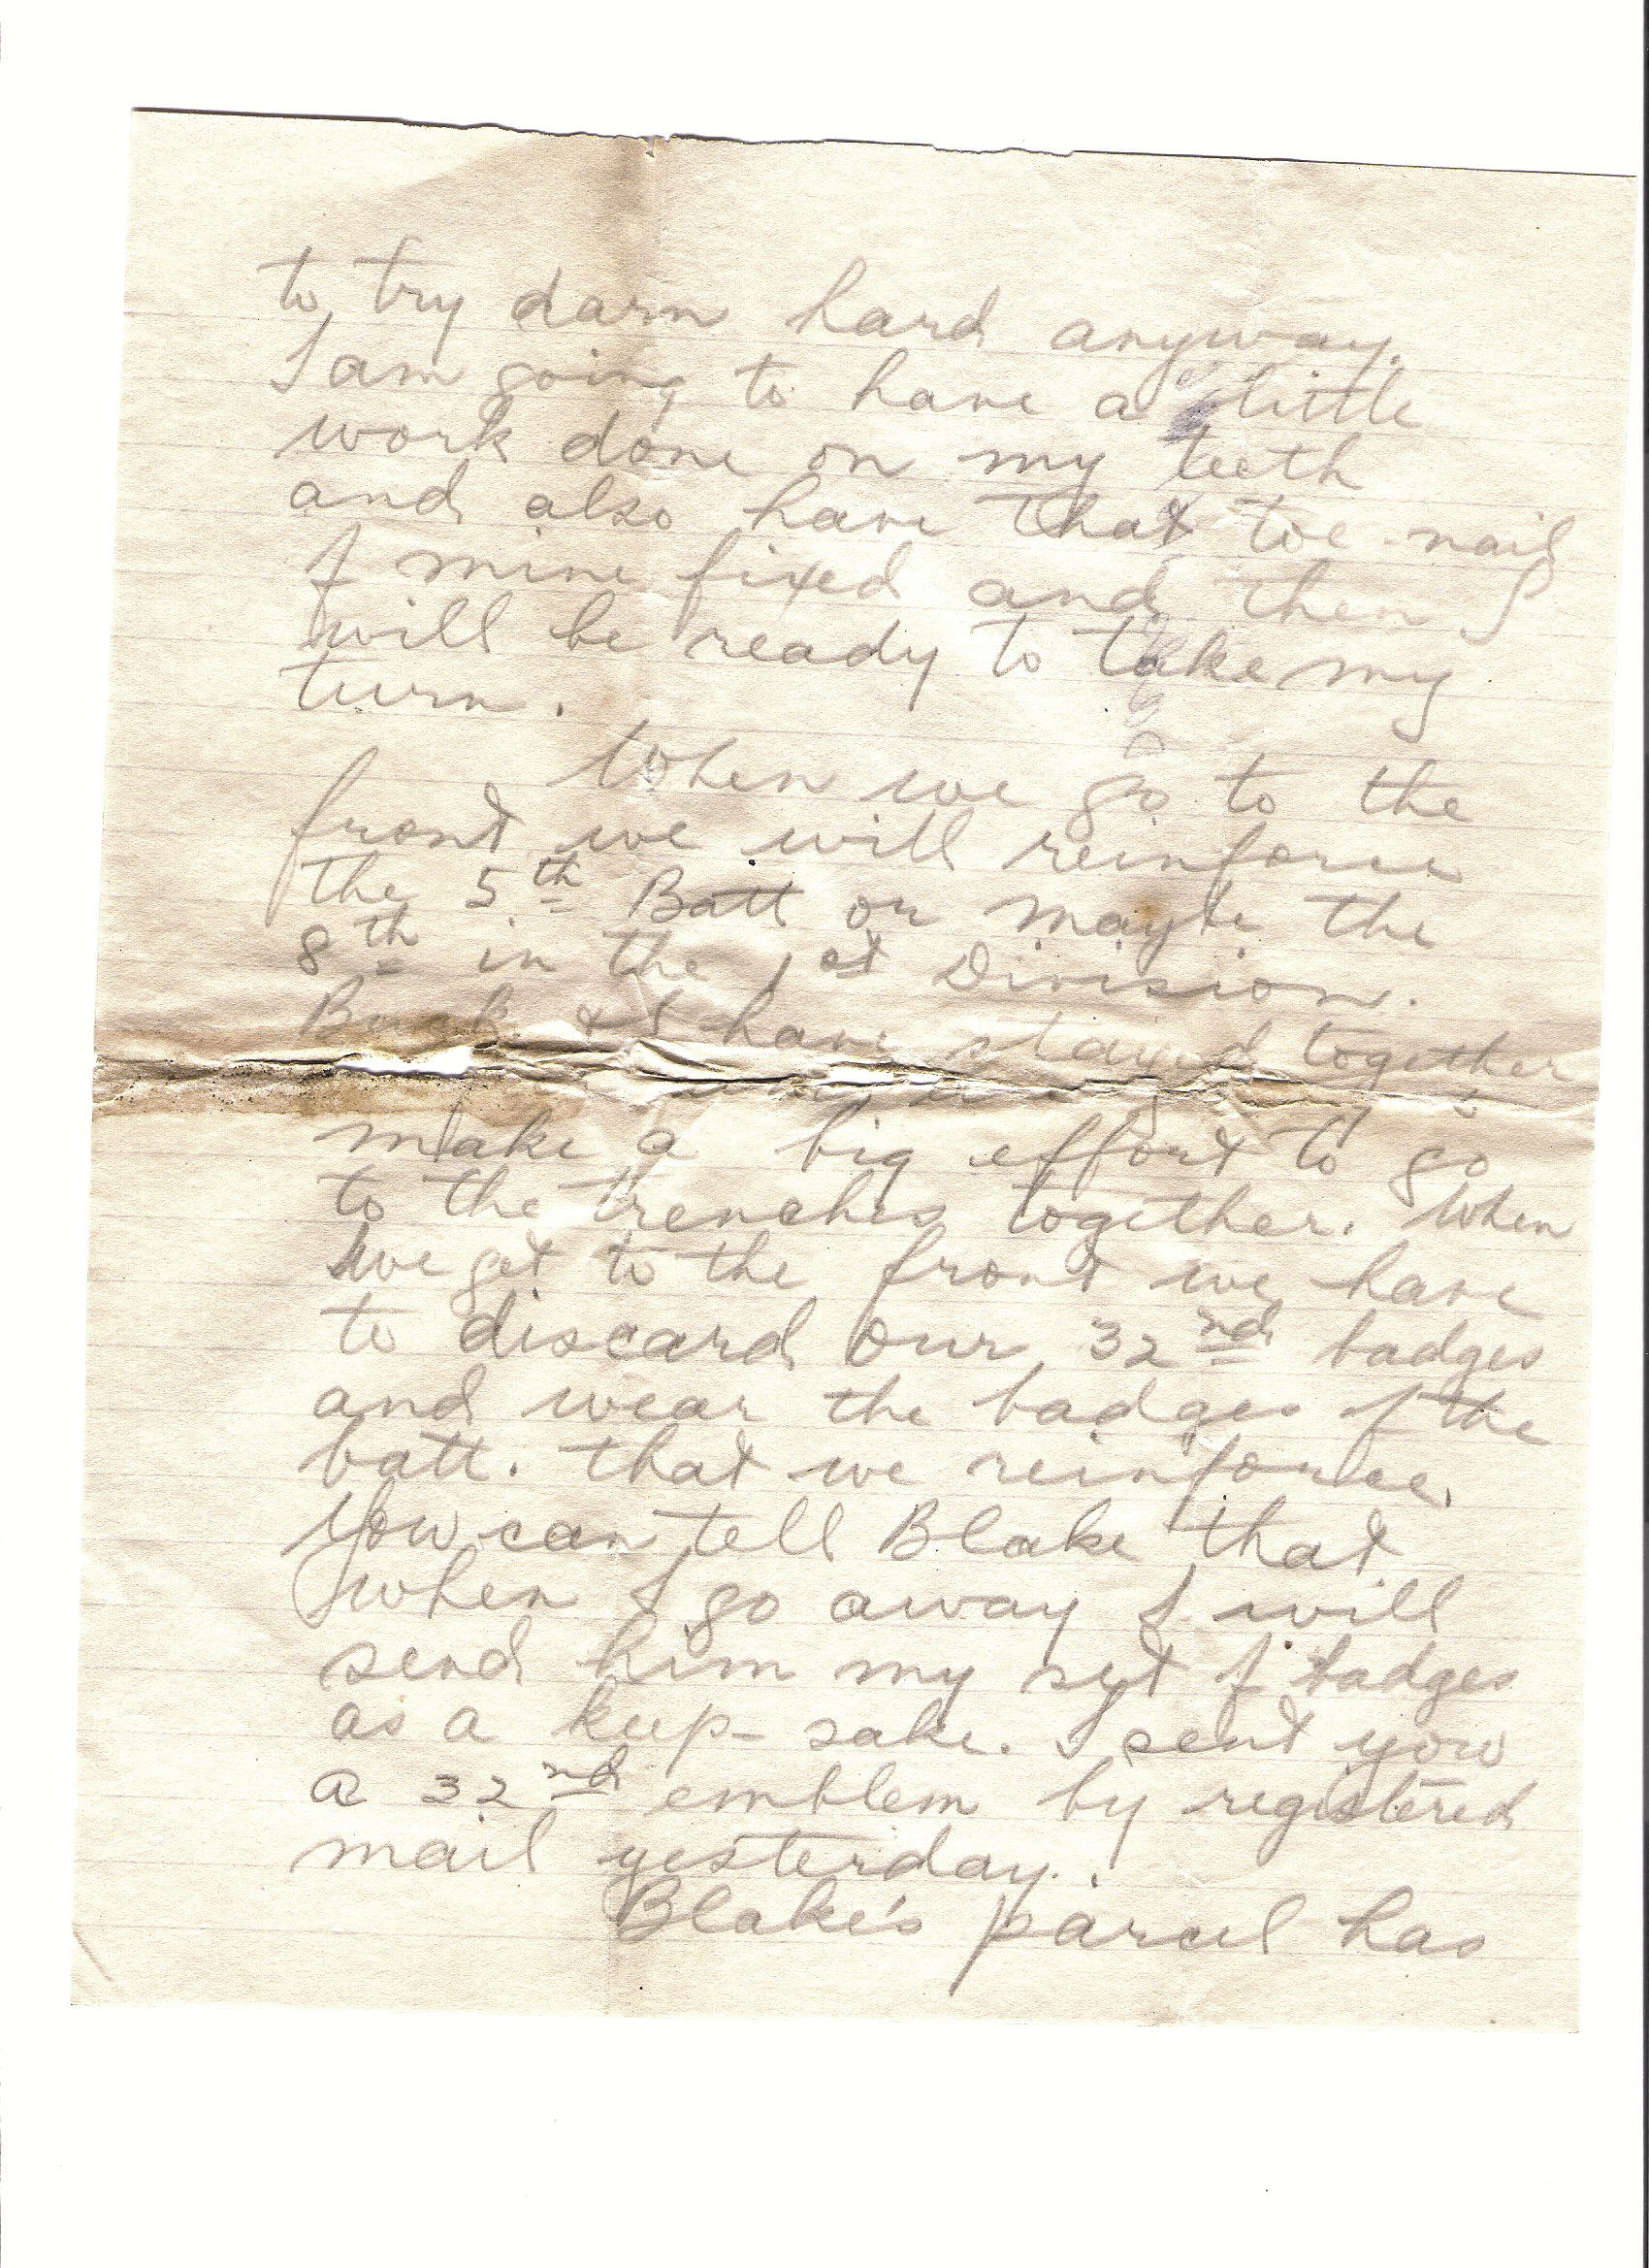 to try darn hard anyway.
I am going to have a little
work done on my teeth
and also have that toe-nail
of mine fixed and then I
will be ready to take my
turn.
When we go to the
front we will reinforce
the 5th Batt or maybe the
8th in the 1st Division.
Buck & I have stayed together
make a big effort to go
to the trenches together. When
we get to the front we have
to discard our 32nd badges
and wear the badges of the
batt. that we reinforce.
You can tell Blake that
when I go away I will
send him my set of badges
as a keep-sake. I sent you
a 32nd emblem by registered
mail yesterday.
Blake's parcel has